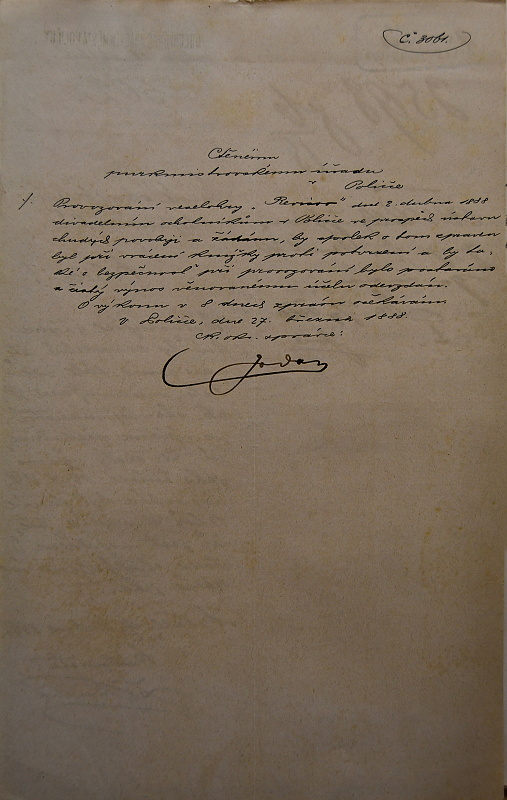 č. 3061.
Ctěnému
purkmistrovskému úřadu
v Poličce
./. Provozování veselohry „Revisor" dne 2. dubna 1888
divadelním ochotníkům v Poličce ve prospěch ústavu
chudých povoluji a žádám, by spolek o tom zpraven
byl při vrácení knížky proti potvrzení a by ta-
ké o bezpečnost při provozování bylo postaráno
a čistý výnos věnovanému účelu odevzdán.
O výkonu v 8 dnech zprávu očekávám
V Poličce, dne 27. března 1888.
C.k. okr. správce: